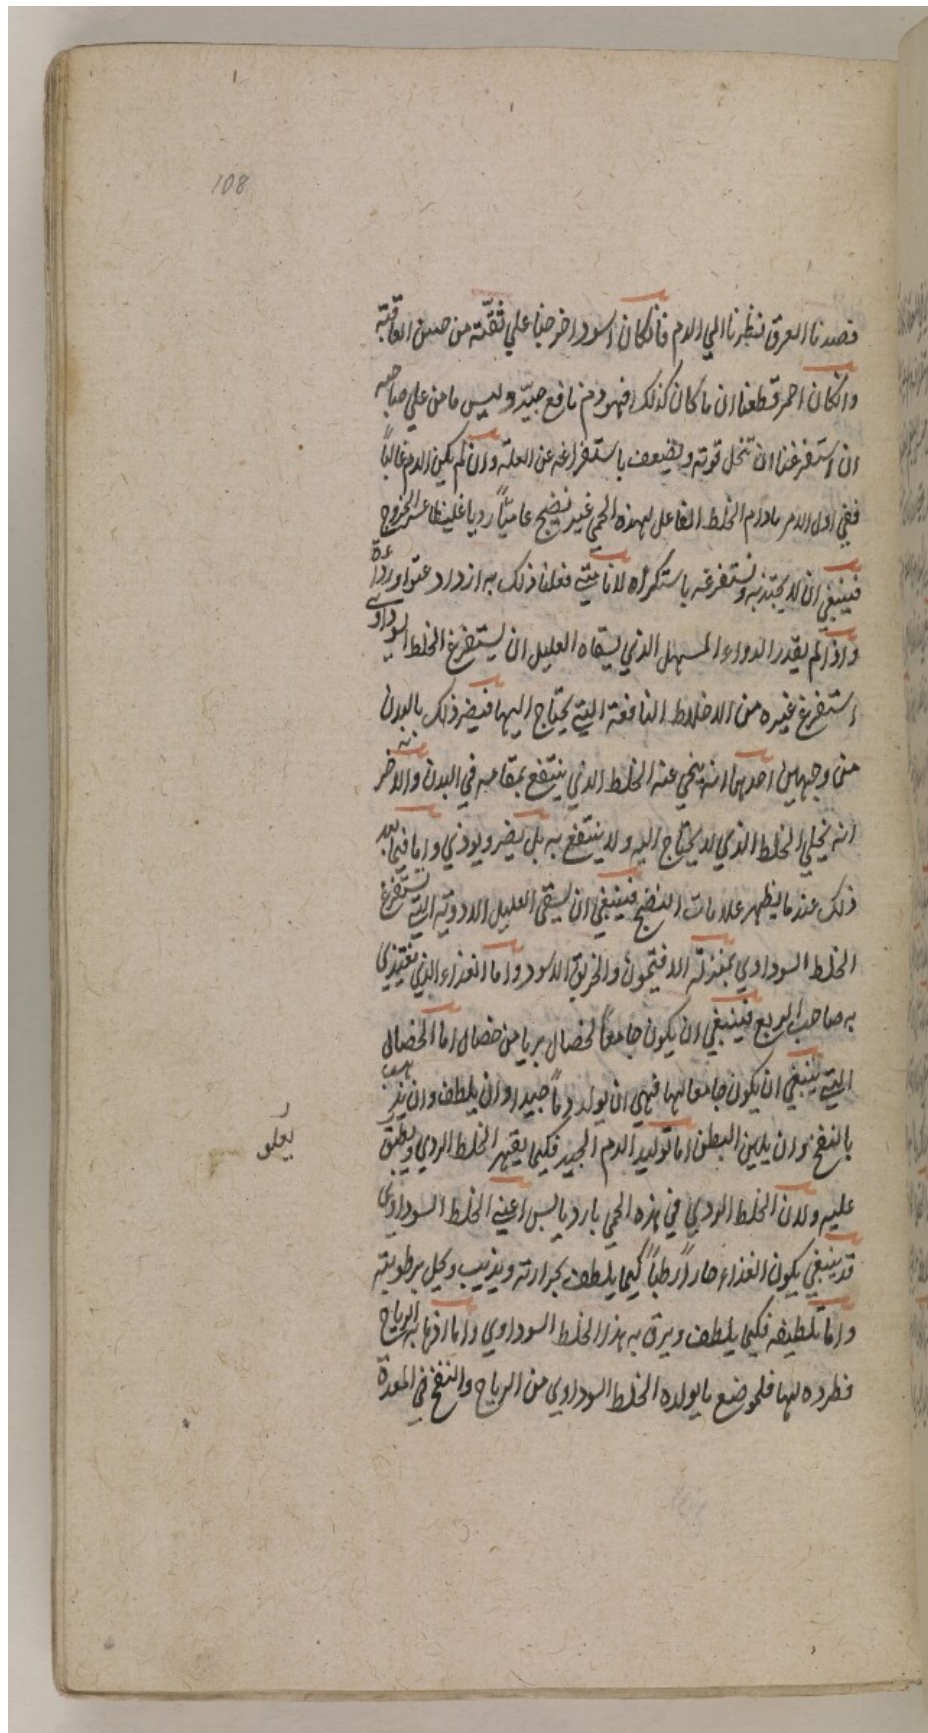 108
فصدنا العرق نظرنا الي الدم فان كان اسود اخرجنا علي ثقة من حسن العاقبة
وانكان احمر قطعنا ان ما كان كذلك فهو دم نافع جيد وليس مامن علي صاحبه
ان استفرغنا ان تنحل قوته ويضعف باستفراغه عن العلة وان لم يكن الدم غالباً
ففي اول الامر مادام الخلط الفاعل لهذه الحمي غير نضيج عاصياً رديا غليظا عسر الخروج
فينبغي ان لا يجتذبه ونستفرغه باستكراه لانا متي فعلنا ذلك به ازداد عتوا ورداءة
واذا لم يقدر الدواء المسهل الذي يسقاه العليل ان يستفرغ الخلط السوداوي
استفرغ غيره من الاخلاط النافعة التي يحتاج اليها فيضر ذلك بالبدن
من وجهين احدهما انه ينحي عنه الخلط الذي ينتفع بمقامه في البدن والاخر
انه يخلي الخلط الذي لا يحتاج اليه ولا ينتفع به بل يضر ويوذي واما فيما بعد
ذلك عندما يظهر علامات النضج فينبغي ان يسقي العليل الادوية التي تستفرغ
الخلط السوداوي بمنزلة الافتيمون والخربق الاسود واما الغذاء الذي يغتذي
به صاحب الربع فينبغي ان يكون جامعاً لخصال بريا من خصال اما الخصال
التي ينبغي ان يكون جامعا لها فهي ان يولد دماً جيدا وان يلطف وان يذهب
بالنفخ وان يلين البطن اما توليد الدم الجيد فكيما يقهر الخلط الردي ويطبق
يعلو
عليه ولان الخلط الردي في هذه الحمي بارد يابس اعني الخلط السوداوي
قد ينبغي يكون الغذاء حاراً رطباً كيما يلطف بحرارته ويذيب ويحل برطوبته
واما تلطيفه فكيما يلطف ويرق به هذا الخلط السوداوي واما اذهابه الرياح
وطرده لها فلموضع ما يولده الخلط السوداوي من الرياح والنفخ في المعدة